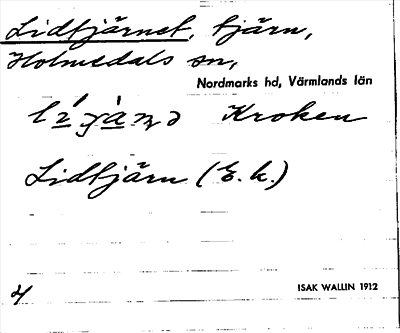 Lidtjärnet, tjärn,
Holmedals sn,
Nordmarks hd, Värmlands län
Kroken
Lidtjärn (E. k.)
4
ISAK WALLIN 1912